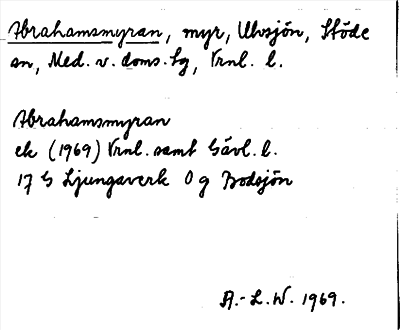 Abrahamsmyran, myr, Ulvsjön, Stöde
sn, Med. v. doms. hg, Vrnl. l.
Abrahamsmyran
ek (1969) Vrnl. samt Gävl. l.
17 G Ljungaverk 0 g Bodsjön
A.-L. W. 1969.